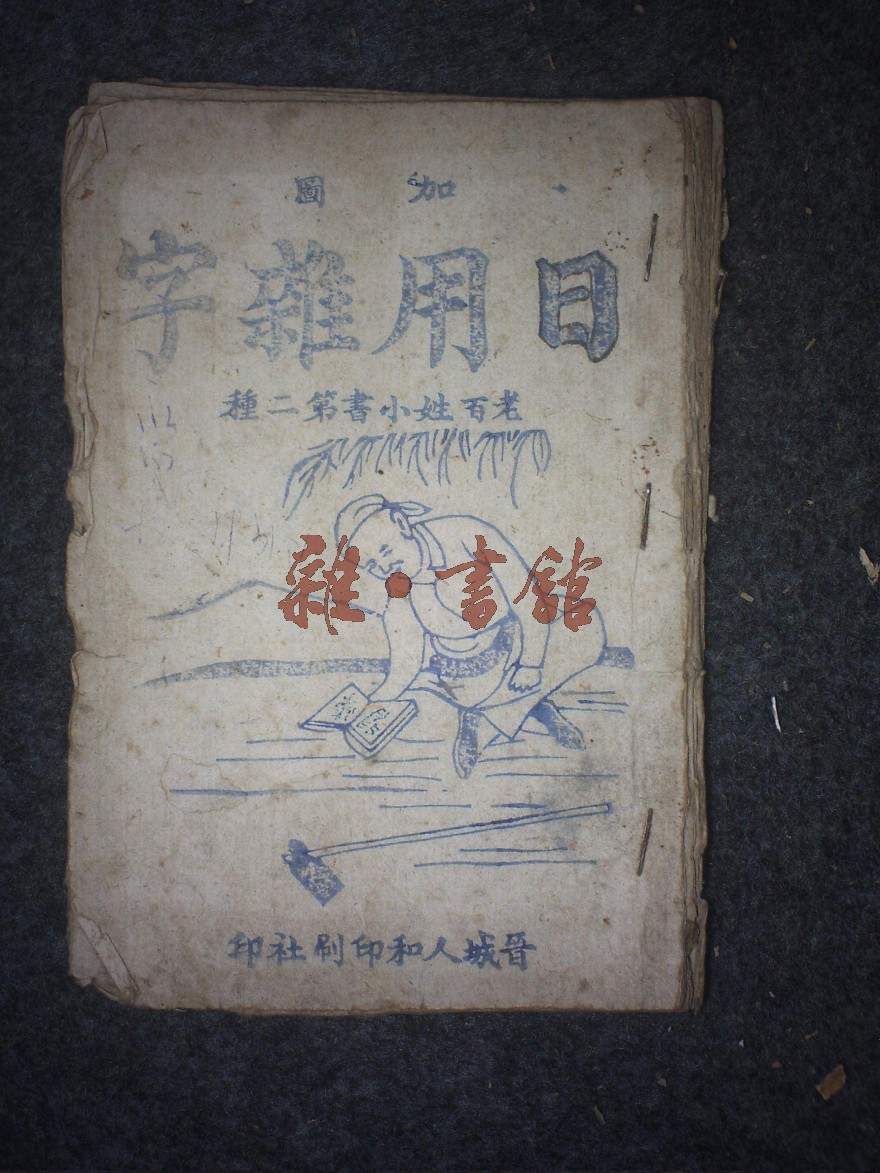 加圖
日用雜字
老百姓小書第二種
雜·書館
晉城人和印刷社印